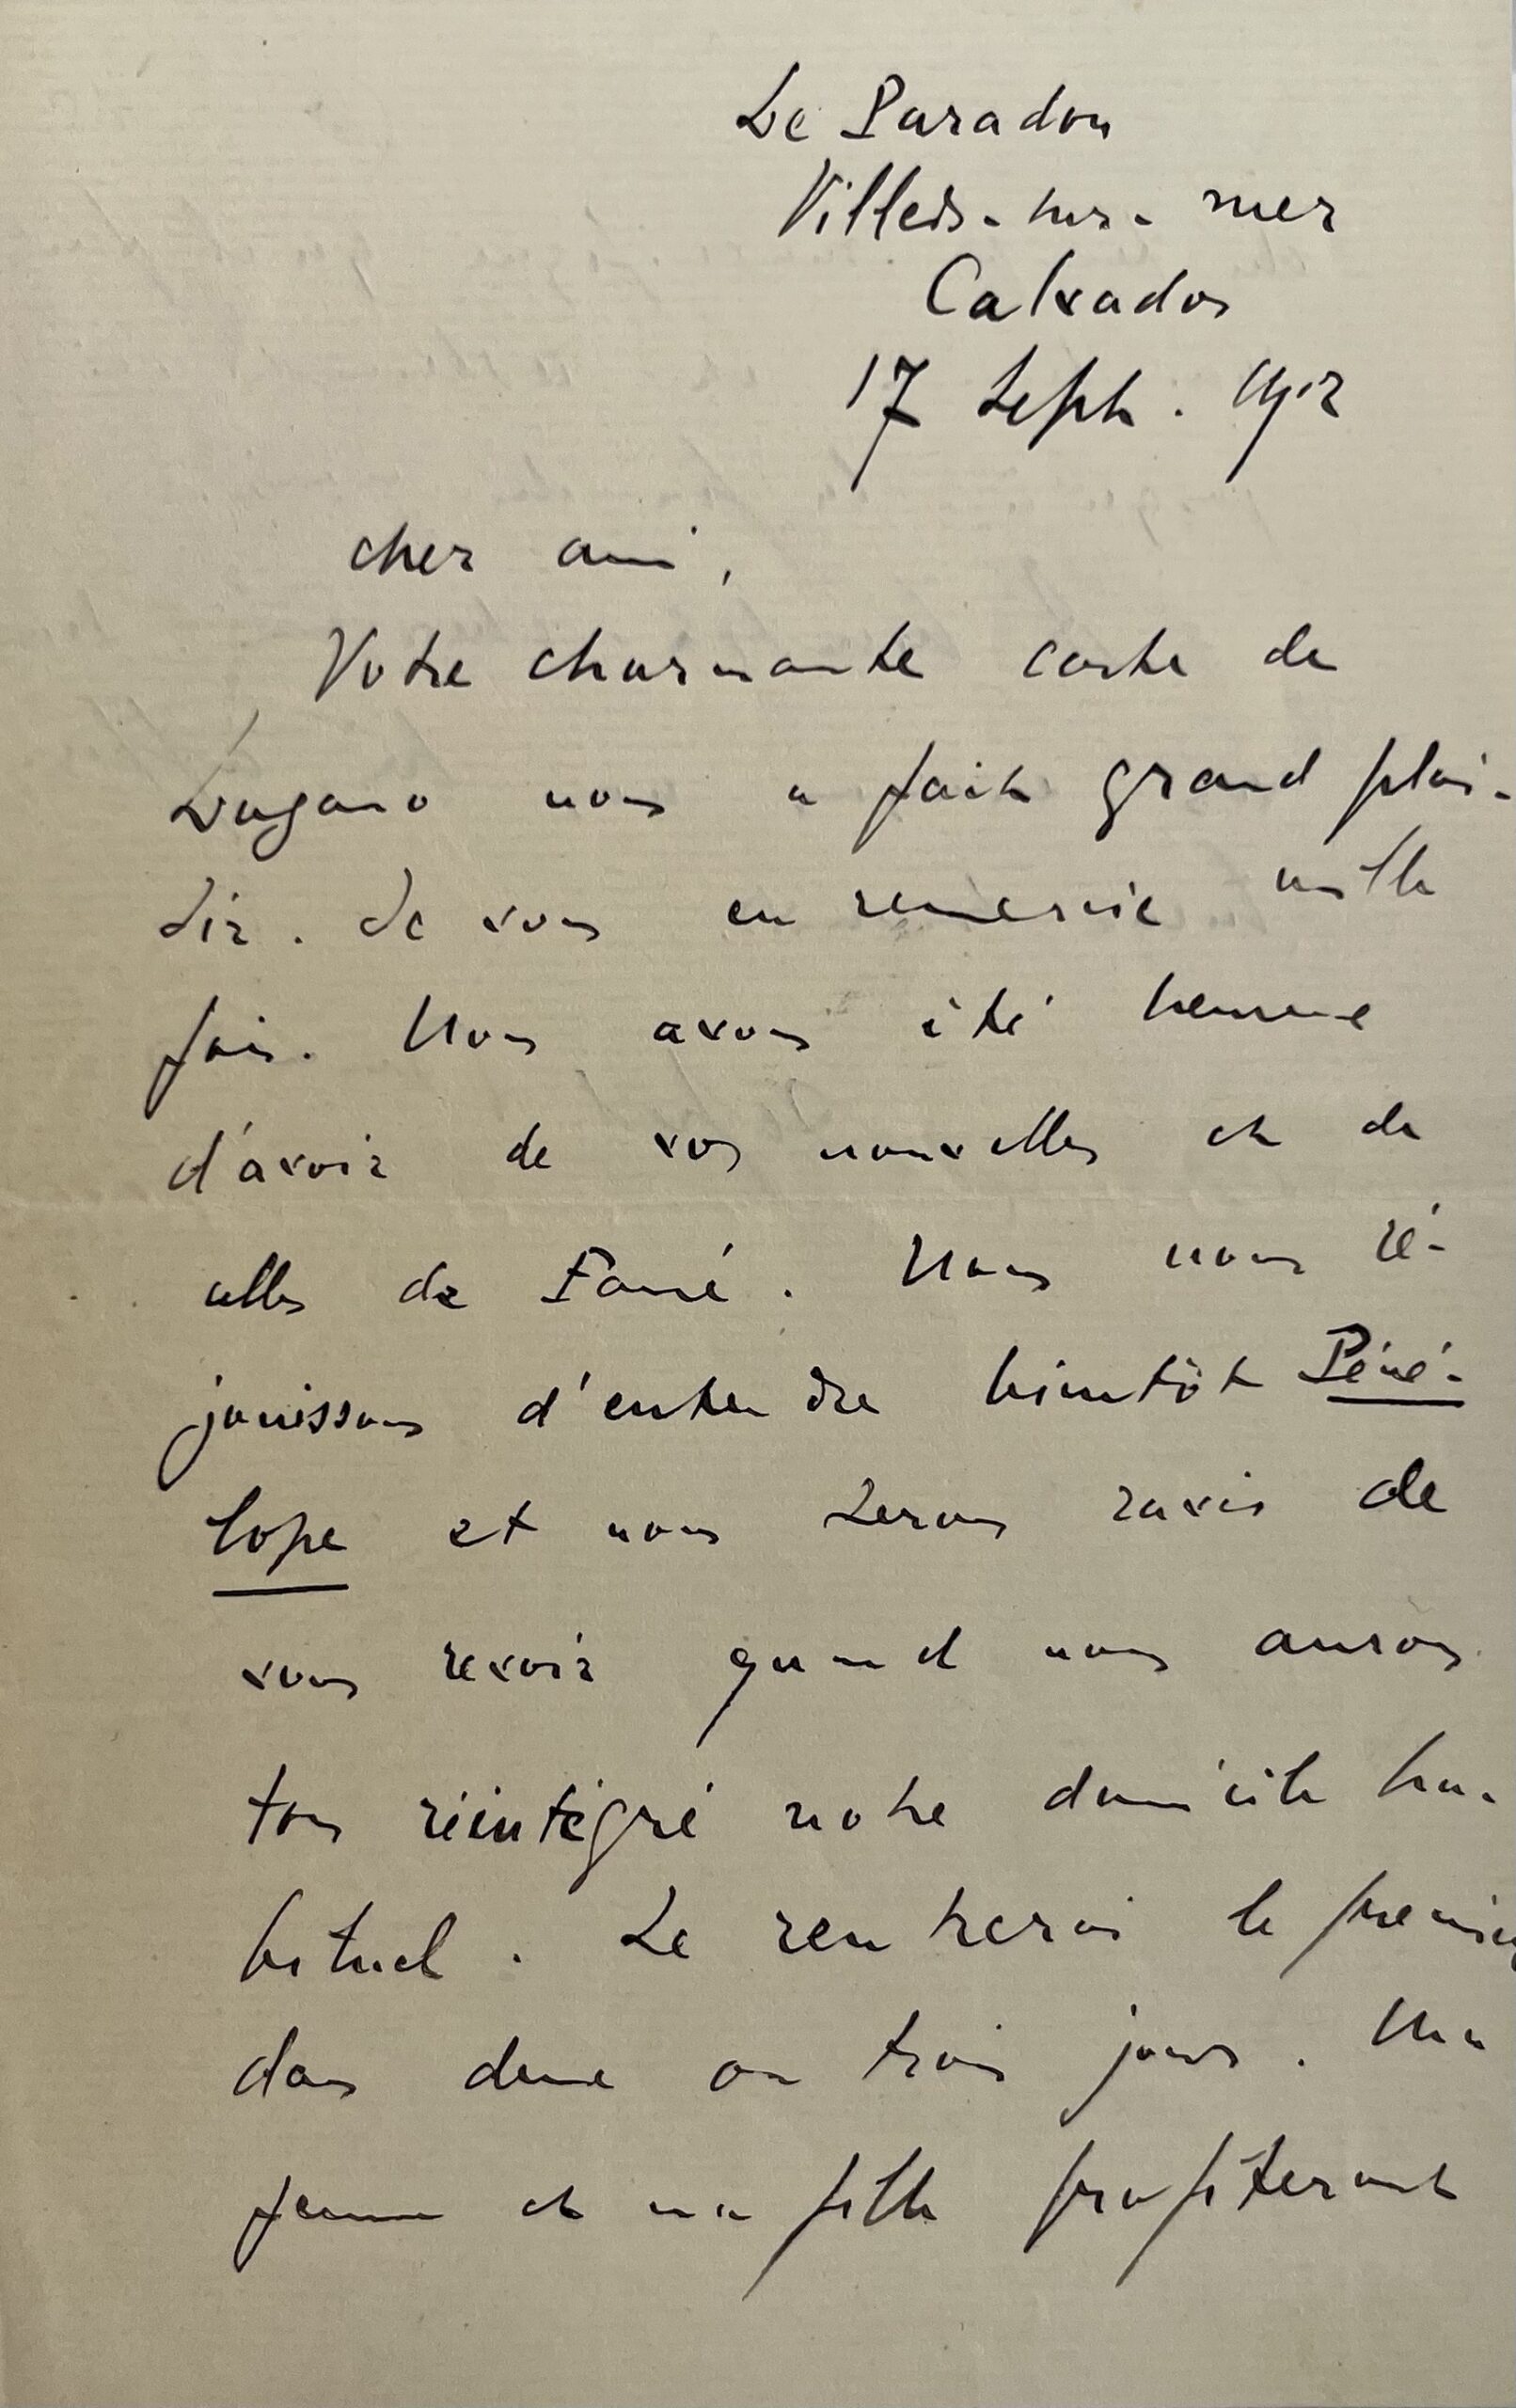 Le Paradou
Villers-sur-mer
Calvados
17 Sept. 1912
cher ami,
Votre charmante carte de
Lugano nous a fait grand plai-
sir. Je vous en remercie mille
fois. Nous avons été heureux
d'avoir de vos nouvelles et de
celles de Fauré. Nous nous ré-
jouissons d'entendre bientôt Péné-
lope et nous serons ravis de
vous revoir quand nous aurons
tous réintégré notre domicile ha-
bituel. Je rentrerai le premier
dans deux ou trois jours. Ma
femme et ma fille profiteront